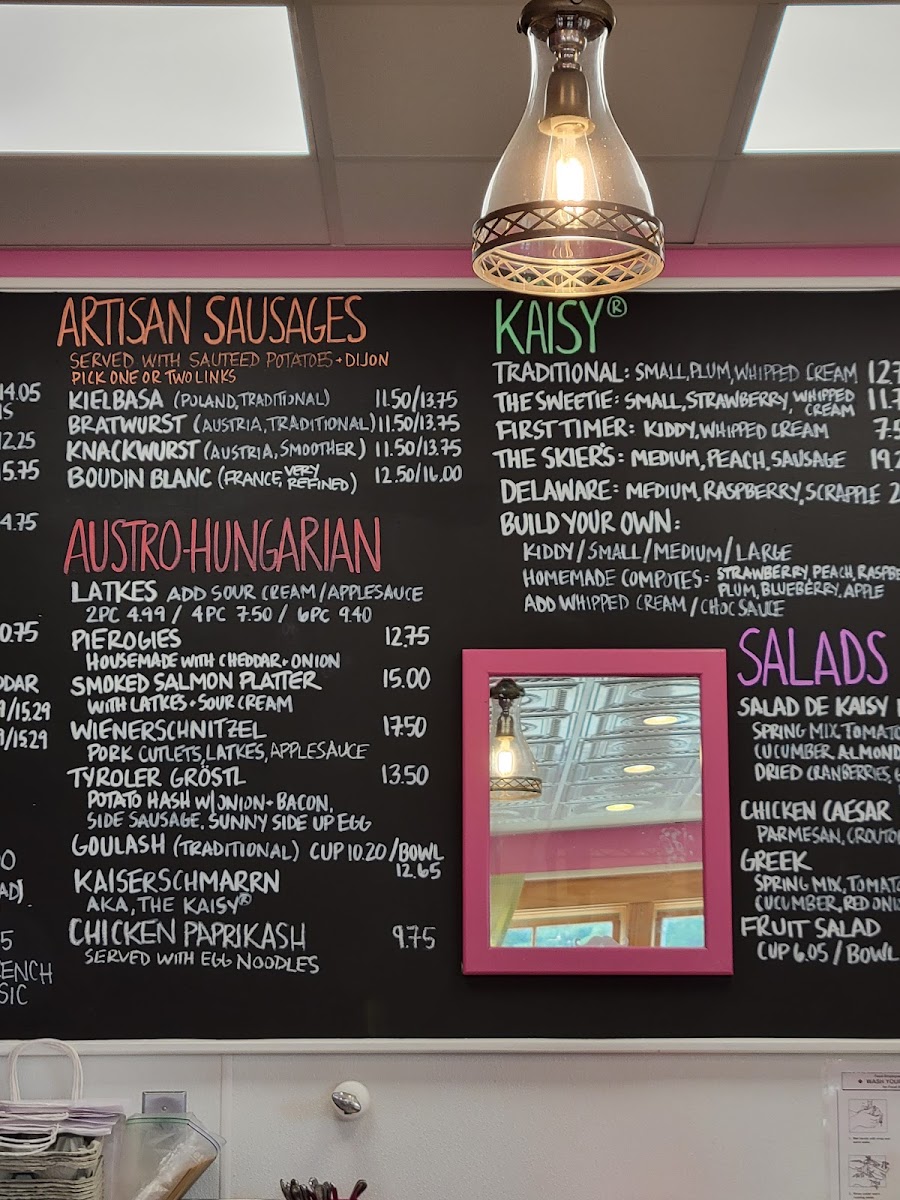 14.05
12.25
15.75
4.75
0.75
9/15.29
9/15.29
ARTISAN SAUSAGES
SERVED WITH SAUTEED POTATOES + DIJON
PICK ONE OR TWO LINKS
KIELBASA (POLAND, TRADITIONAL) 11.50/13.75
BRATWURST (AUSTRIA, TRADITIONAL) 11.50/13.75
KNACKWURST (AUSTRIA, SMOOTHER) 11.50/13.75
BOUDIN BLANC (FRANCE, VERY REFINED) 12.50/16.00
AUSTRO-HUNGARIAN
LATKES ADD SOUR CREAM/APPLESAUCE
2PC 4.99 / 4PC 7.50 / 6PC 9.40
PIEROGIES 12.75
HOUSEMADE WITH CHEDDAR + ONION
SMOKED SALMON PLATTER 15.00
WITH LATKES + SOUR CREAM
WIENERSCHNITZEL 17.50
PORK CUTLETS, LATKES, APPLESAUCE
TYROLER GRÖSTL 13.50
POTATO HASH W/ONION + BACON,
SIDE SAUSAGE, SUNNY SIDE UP EGG
GOULASH (TRADITIONAL) CUP 10.20 /BOWL
12.65
KAISERSCHMARRN
AKA, THE KAISY®
CHICKEN PAPRIKASH 9.75
SERVED WITH EGG NOODLES
KAISY®
TRADITIONAL: SMALL, PLUM, WHIPPED CREAM
THE SWEETIE: SMALL, STRAWBERRY, WHIPPED CREAM
FIRST TIMER: KIDDY, WHIPPED CREAM
THE SKIER'S: MEDIUM, PEACH, SAUSAGE
DELAWARE: MEDIUM, RASPBERRY, SCRAPPLE
BUILD YOUR OWN:
KIDDY/SMALL/MEDIUM/LARGE
HOMEMADE COMPOTES: STRAWBERRY, PEACH, RASPBE
PLUM, BLUEBERRY, APPLE
ADD WHIPPED CREAM/CHOC SAUCE
SALADS
SALAD DE KAISY
SPRING MIX, TOMATO
CUCUMBER, ALMOND
DRIED CRANBERRIES,
CHICKEN CAESAR
PARMESAN, CROUTO
GREEK
SPRING MIX, TOMATO
CUCUMBER, RED ONI
FRUIT SALAD
CUP 6.05 / BOWL
WASH YOUR